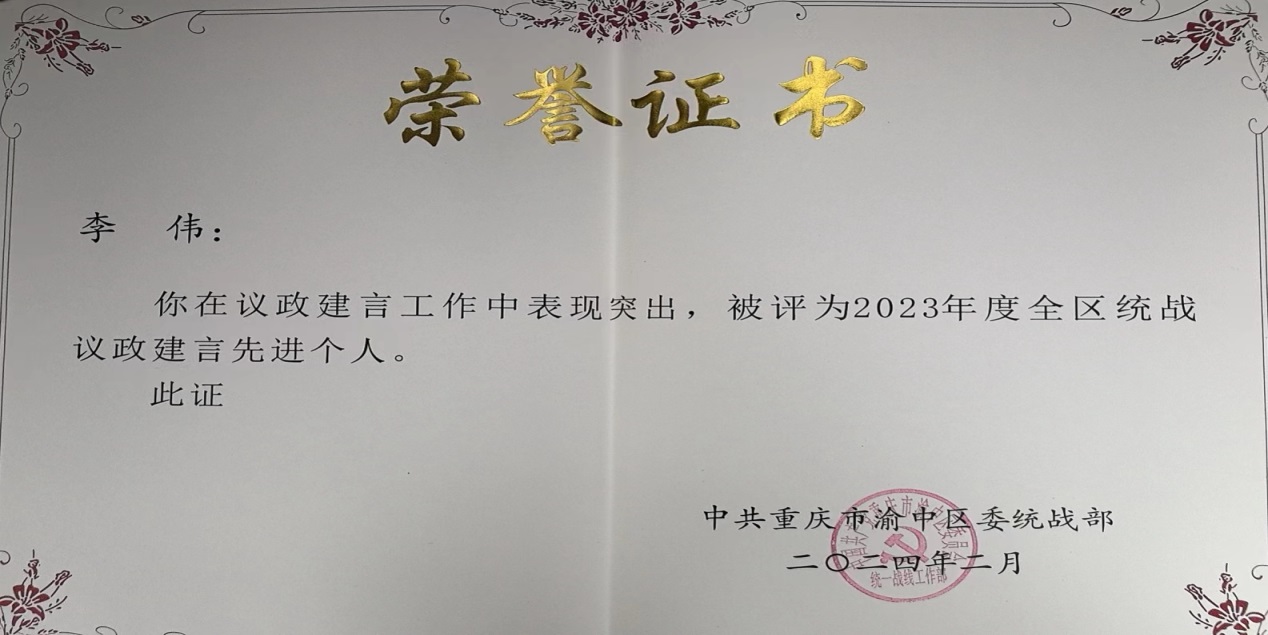 荣誉证书
李 伟：
你在议政建言工作中表现突出，被评为2023年度全区统战
议政建言先进个人。
此证
中共重庆市渝中区委统战部
二〇二四年二月
中国共产党重庆市渝中区委员会
统一战线工作部